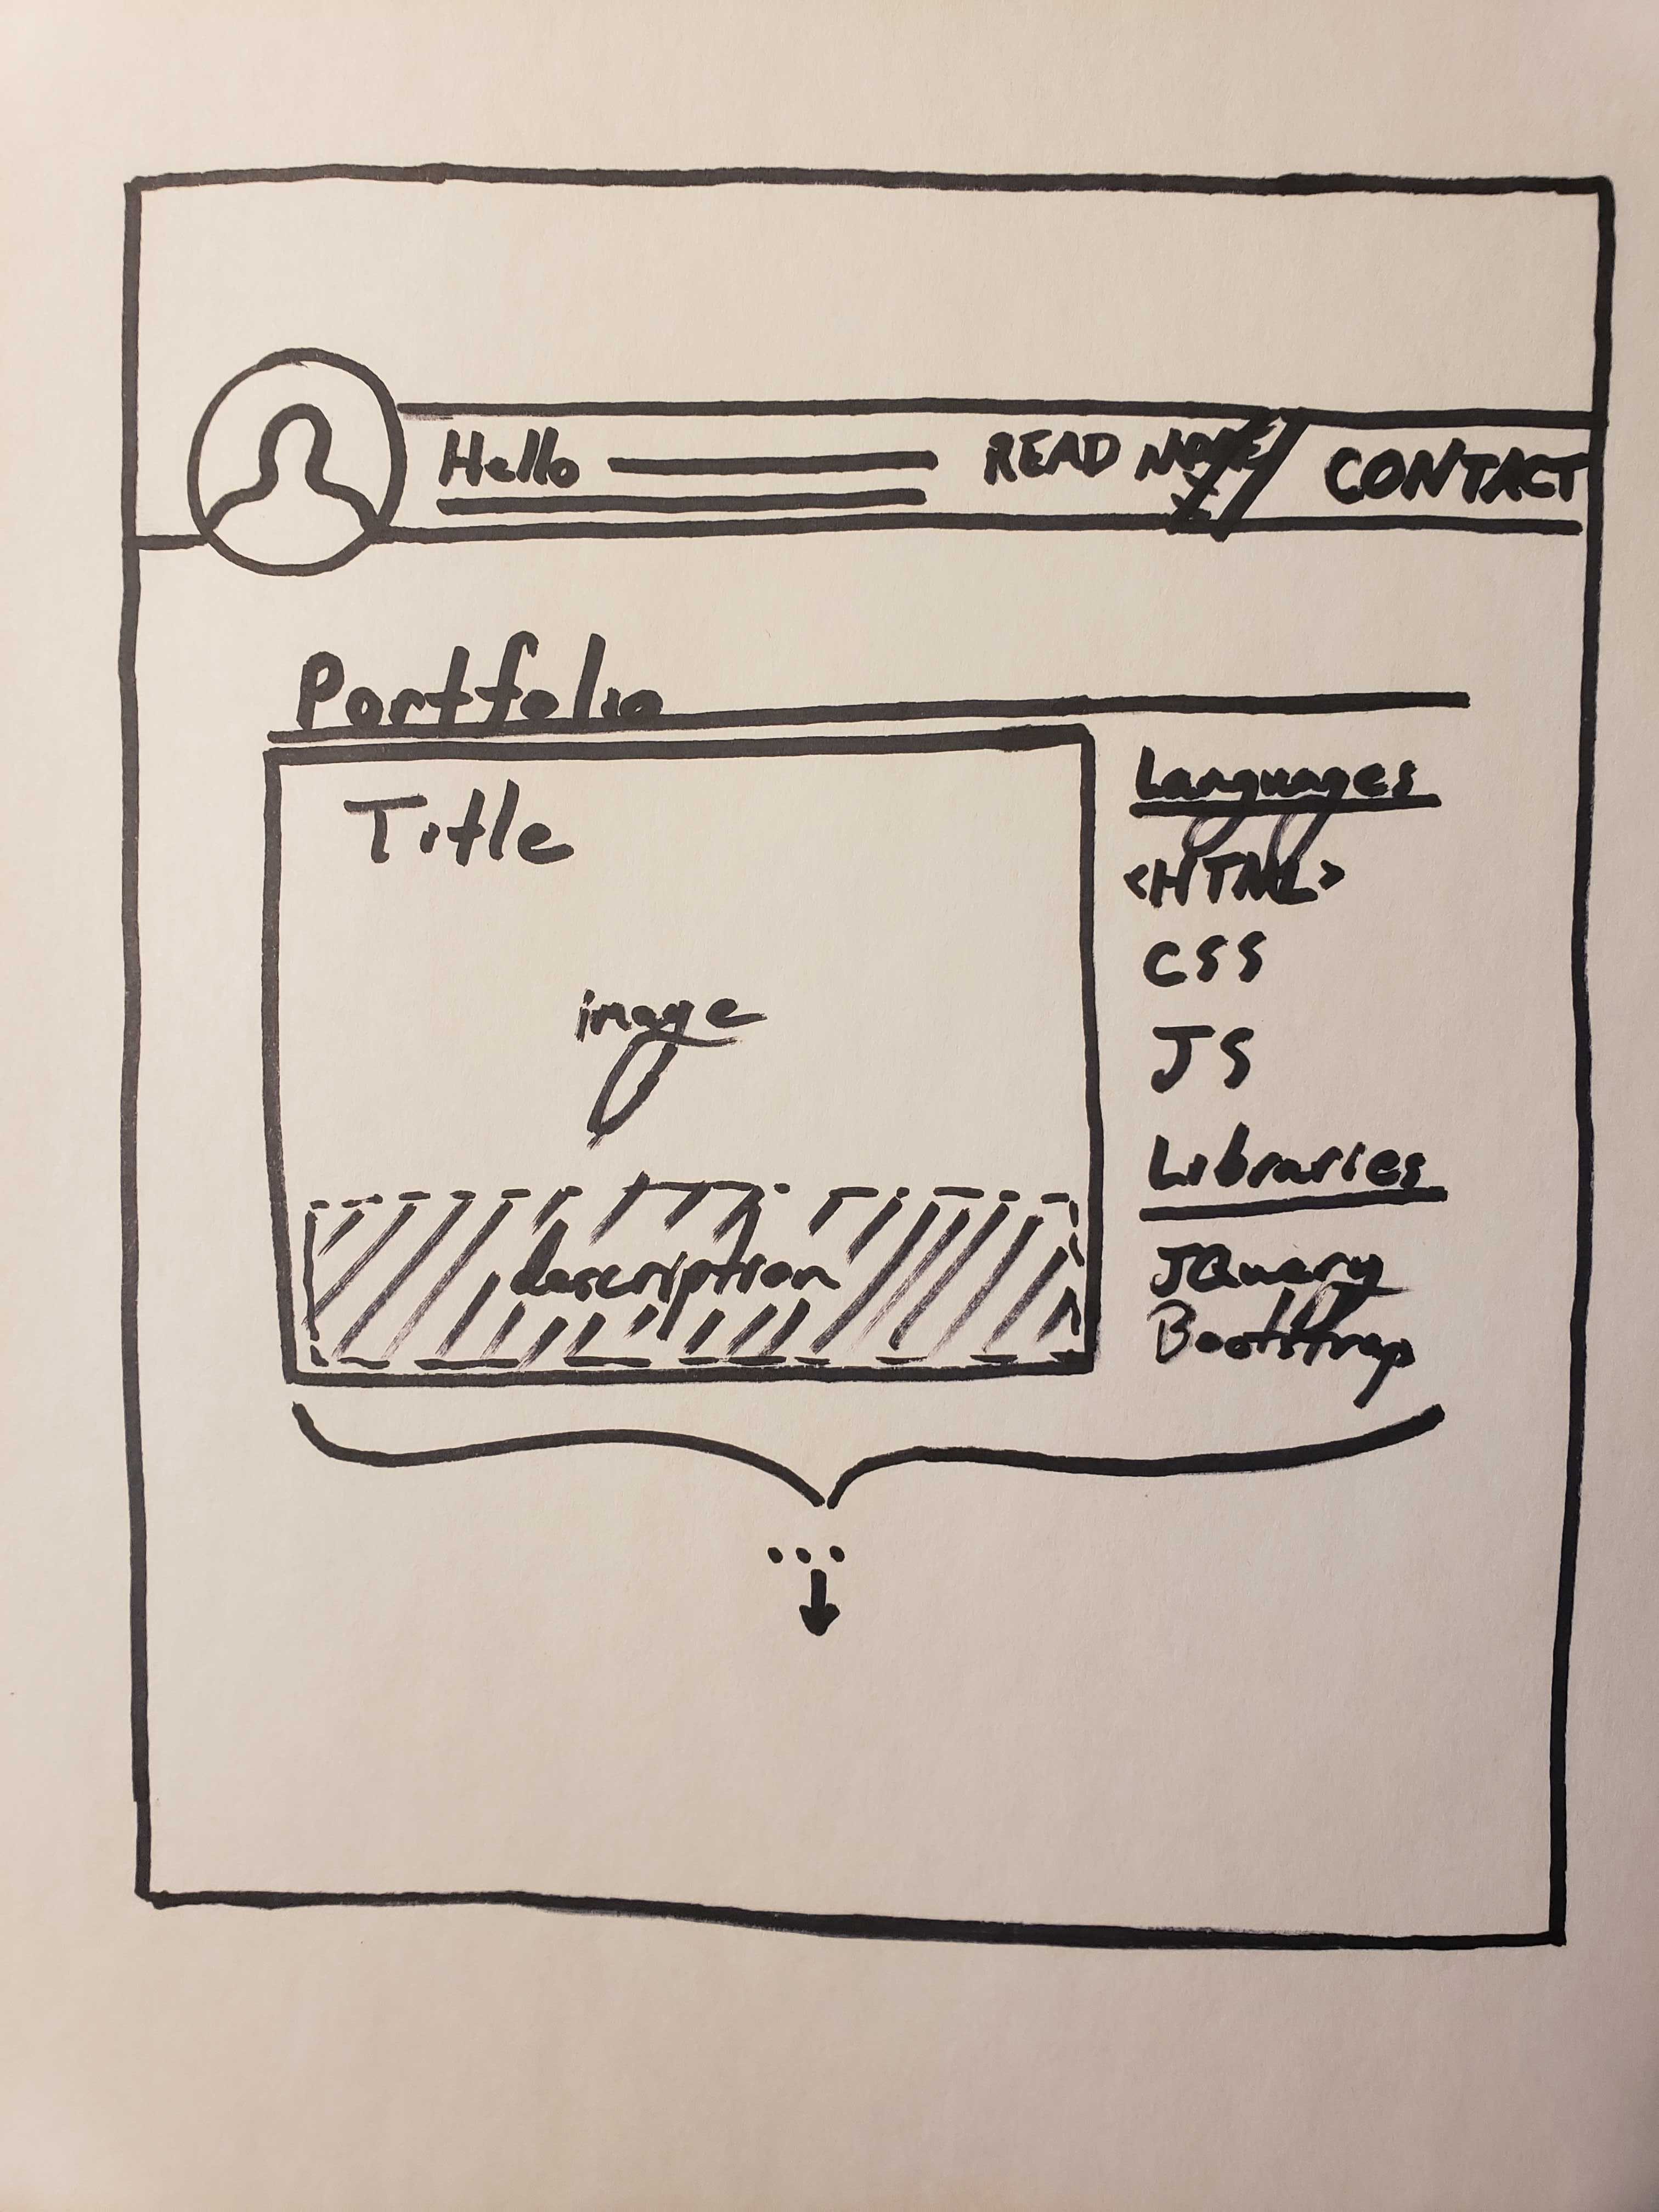 Hello READ MORE CONTACT
Portfolio
Title
image
description
Languages
<HTML>
CSS
JS
Libraries
JQuery
Bootstrap
...